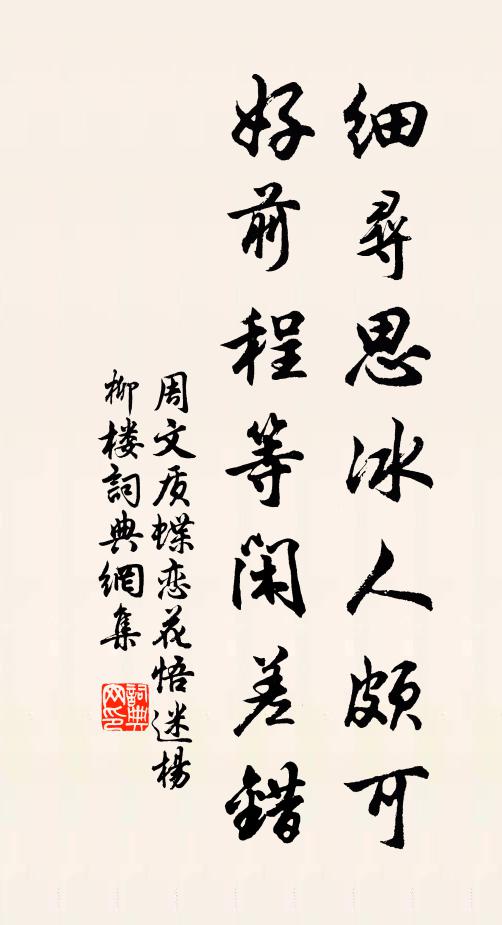 细寻思冰人颇可
好前程等闲差错
周文质蝶恋花悟迷杨
柳楼词典網集
詞典
网印